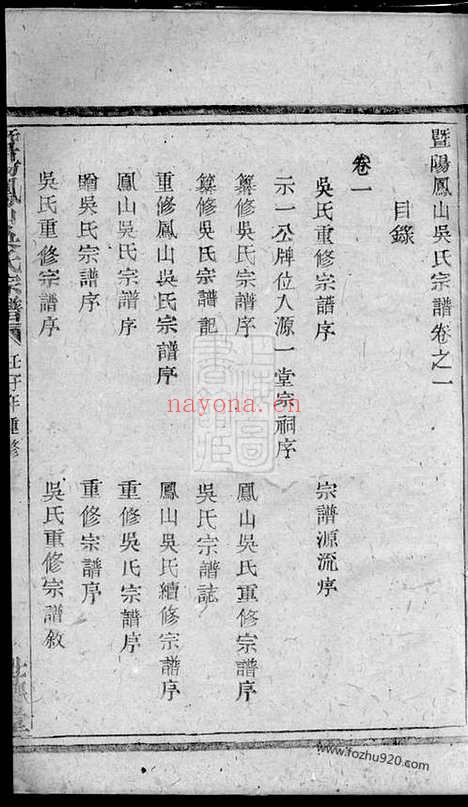 暨陽鳳山吳氏宗譜卷之一
目錄
卷一
吳氏重修宗譜序
宗譜源流序
示一公牌位入源一堂宗祠序
纂修吳氏宗譜序
鳳山吳氏重修宗譜序
纂修吳氏宗譜記
吳氏宗譜誌
重修鳳山吳氏宗譜序
鳳山吳氏續修宗譜序
鳳山吳氏宗譜序
重修吳氏宗譜序
贈吳氏宗譜序
重修宗譜序
吳氏重修宗譜序
吳氏重修宗譜敘
壬子年重修
nayona.cn
www.fozhu920.com